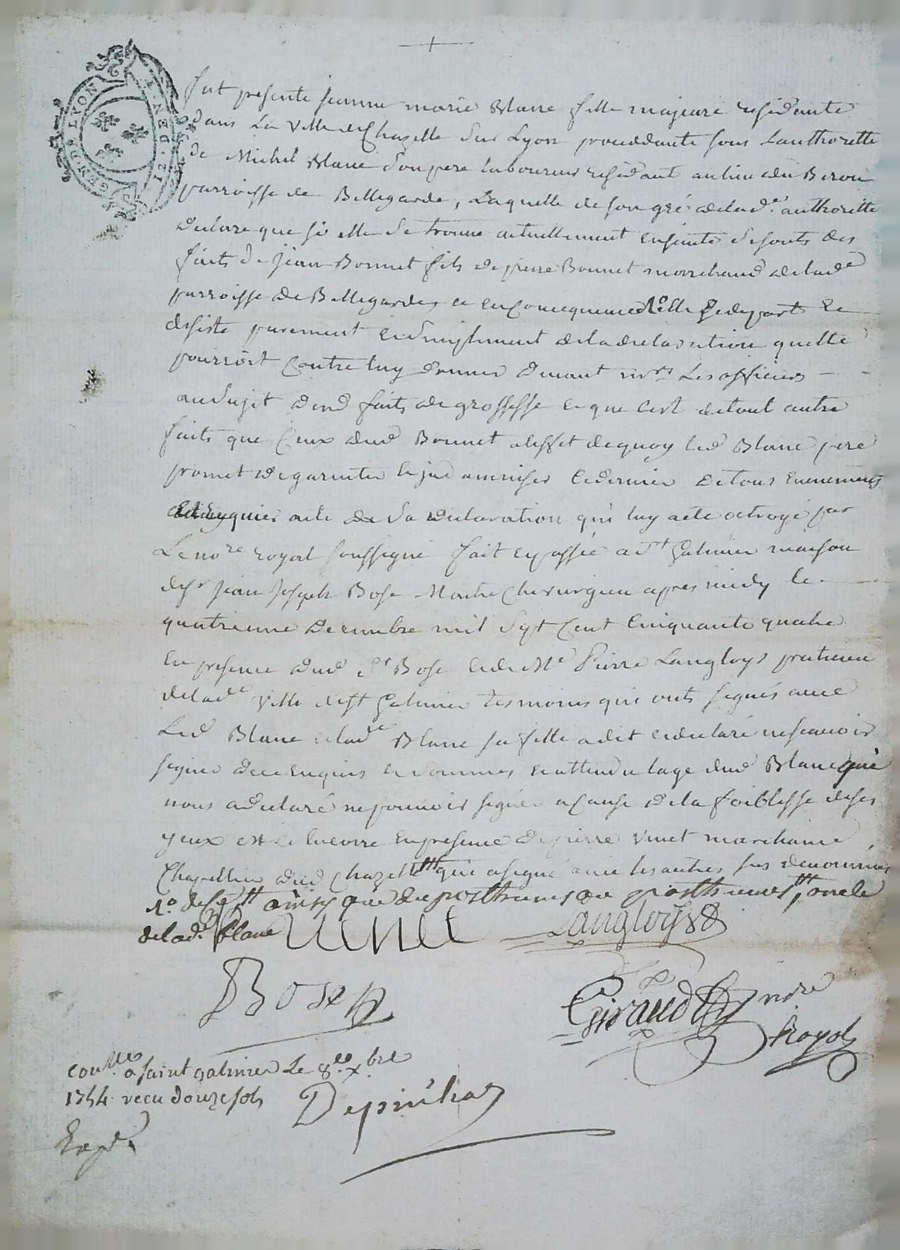 GEN. DE LYON
12. DEN. I
fut presente jeanne marie Blanc fille majeure residente
dans La Ville de Chazelle Sur Lyon proceddante sous Lauthoritte
de Michel Blanc son pere laboureur residant au lieu du
parroisse de Bellegarde, Laquelle de son gré de lade authoritte
declare que si elle se trouve actuellement enseinte des
faits de jean Bonnet fils de pierre Bonnet marchand de lade
parroisse de Bellegarde, et en consequence elle se depart et
desiste purement et simplement de la declaration quelle
pourroit Contre luy donner devant mrs Les officiers
au Sujet dud faits de grossesse
faits que Ceux dud Bonnet a leffet de quoy led Blanc pere
promet de garentir ce dernier de tous Evenements
acte de Sa declaration qui luy a ete octroyé par
Le nore royal soussigné fait et passée a st galmier maison
de sr jean Joseph Bose Maitre Chirurgien apres midy le
quatrieme decembre mil Sept Cent Cinquante quatre
En presence dud sr Bose et de Me Pierre Langloys praticien
de lade ville de st galmier temoins qui onts signés avec
Led Blanc et lade Blanc sa fille a dit et declaré ne scavoir
signer de ce enquis et sommes et attendu lage dud Blanc qui
nous a declaré ne pouvoir signer a cause de la foiblesse de ses
yeux est Encorre En presence de pierre vinet marchand
Chapellier dud Chazelle qui a signé avec les autres sus denommés
de lade Blanc
Langloys
Bose
Giraud nore
Royal
conllé a saint galmier Le 8e xbre
1754 recu douze sols
Expé